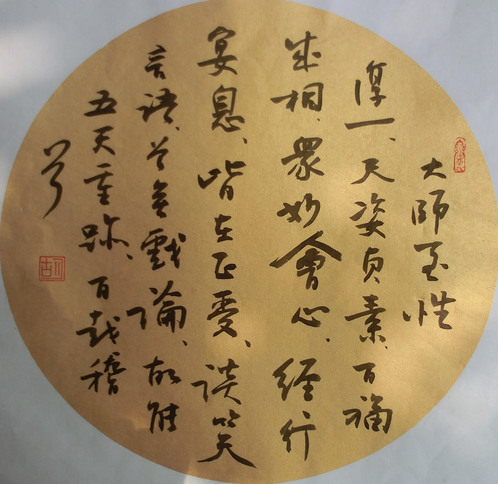 大師至性
淳一、天姿貞素、百福
成相、眾妙會心、經行
宴息、皆在正受、談笑
言語、曾無戲論、故能
五天重跡、百越稽
首